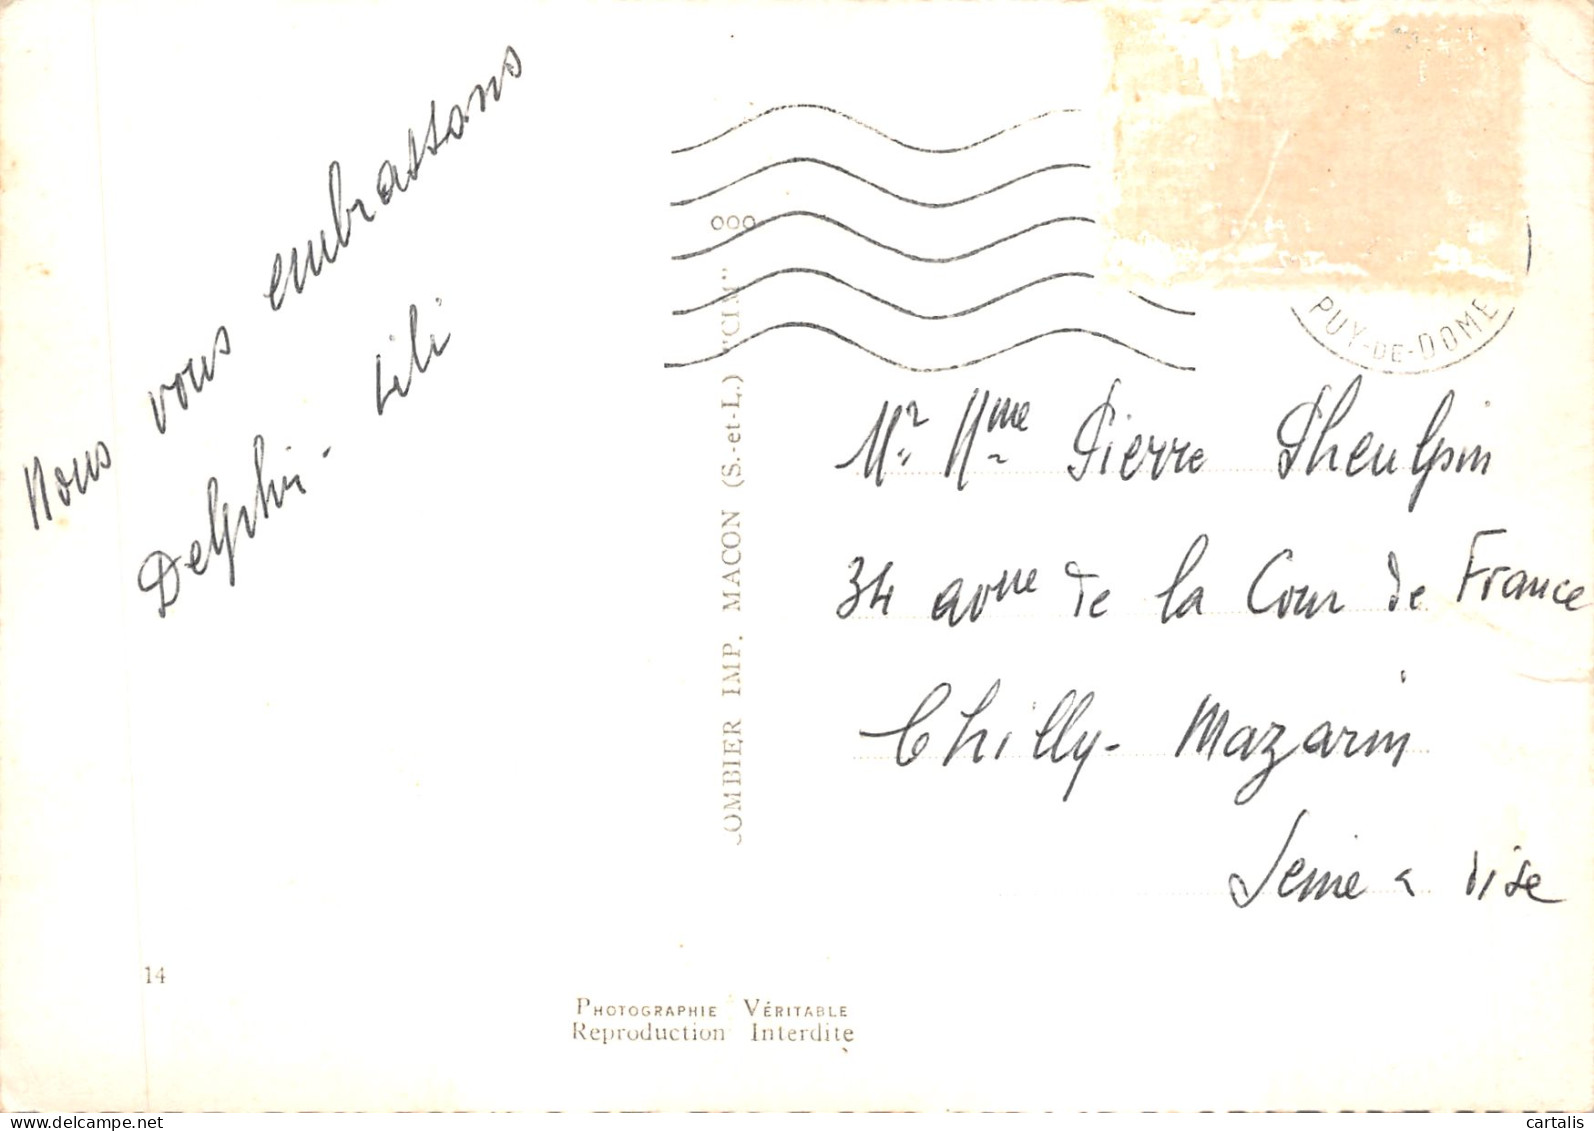 Nous vous embrassons
Delphin - Lili
PUY-DE-DOME
Mr. Mme Pierre Pheulpin
34 avnue de la Cour de France
Chilly-Mazarin
Seine & Oise
OMBIER IMP. MACON (S.-et-L.) "CIM"
14
PHOTOGRAPHIE VÉRITABLE
Reproduction Interdite
www.delcampe.net
cartalis